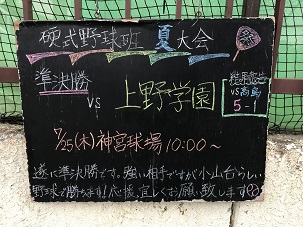 硬式野球班 夏大会
準決勝
vs 上野学園
vs 高島
5-1
7/25(木)神宮球場 10:00～
遂に準決勝です。強い相手ですが小山台らしい
野球で勝ちます!応援、宜しくお願い致します